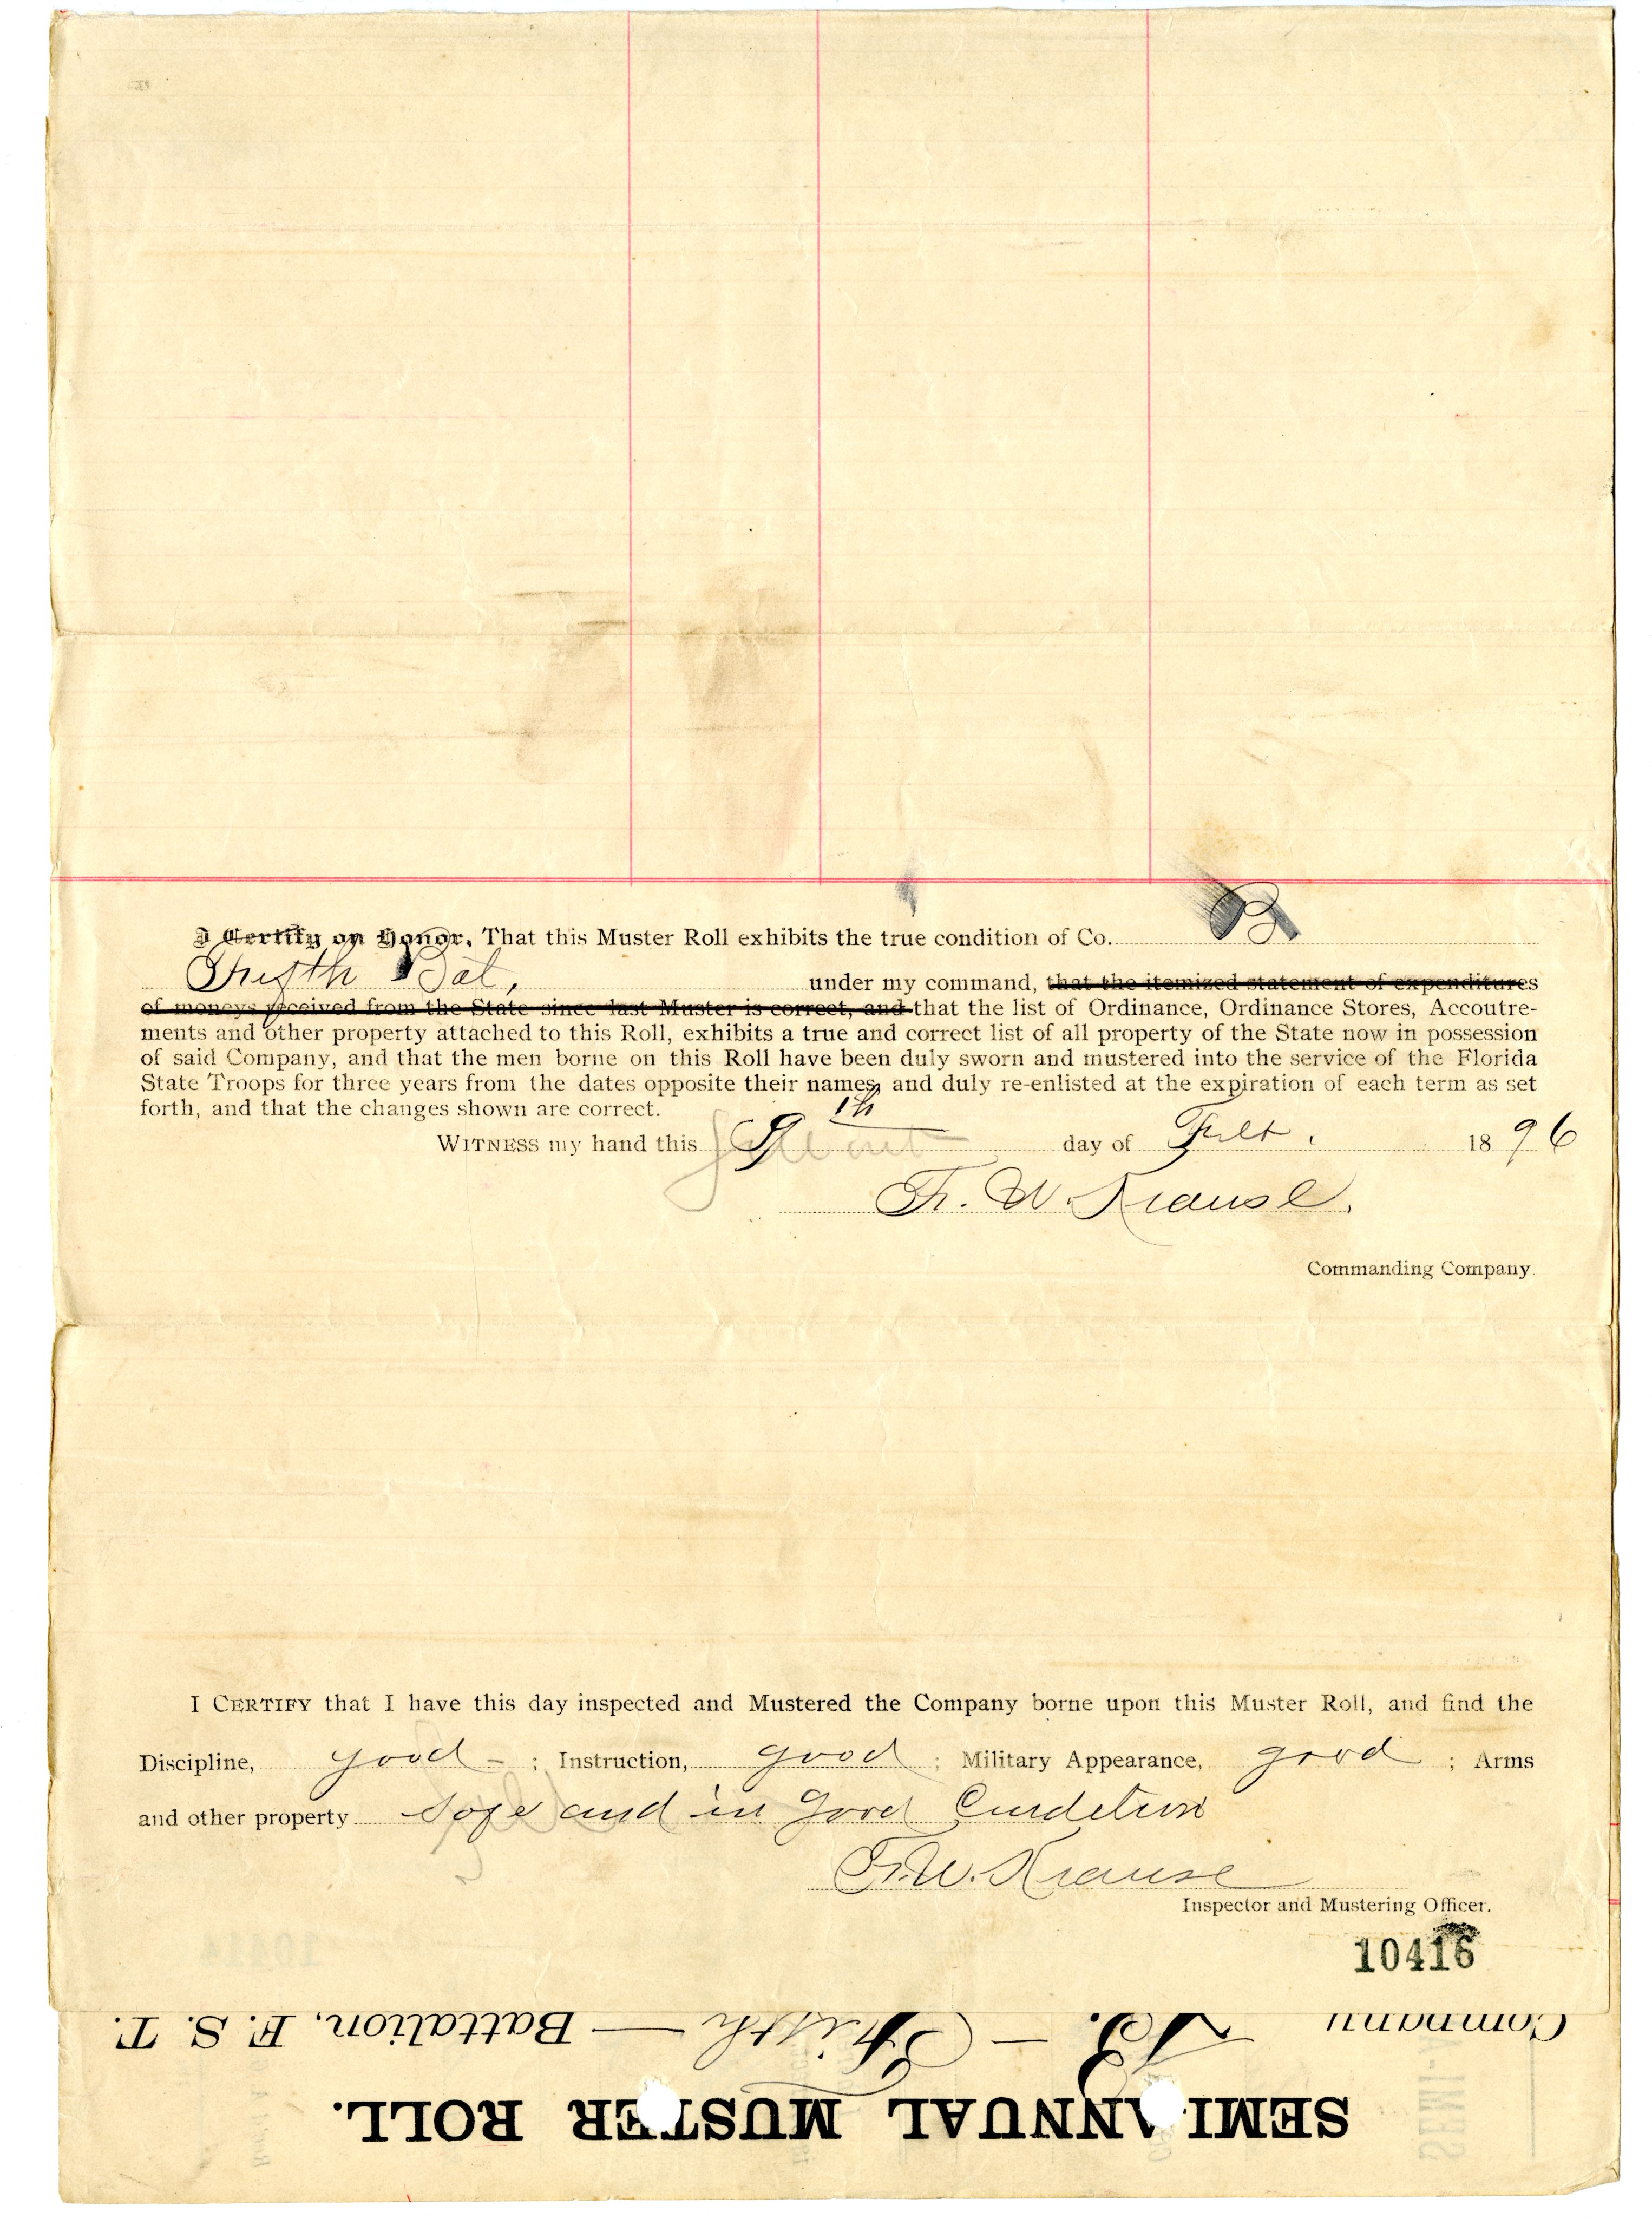 I Certify on Honor, That this Muster Roll exhibits the true condition of Co. B
Fifth Bat, under my command, that the itemized statement of expenditures
of moneys received from the State since last Muster is correct, and that the list of Ordinance, Ordinance Stores, Accoutre-
ments and other property attached to this Roll, exhibits a true and correct list of all property of the State now in possession
of said Company, and that the men borne on this Roll have been duly sworn and mustered into the service of the Florida
State Troops for three years from the dates opposite their names, and duly re-enlisted at the expiration of each term as set
forth, and that the changes shown are correct.
WITNESS my hand this 9th day of Feb. 1896
Fr. W. Krause.
Commanding Company.
I CERTIFY that I have this day inspected and Mustered the Company borne upon this Muster Roll, and find the
Discipline, good ; Instruction, good ; Military Appearance, good ; Arms
and other property safe and in good Condition
Fr. W. Krause
Inspector and Mustering Officer.
10416
Company B. — Fifth — Battalion, F. S. T.
SEMI-ANNUAL MUSTER ROLL.